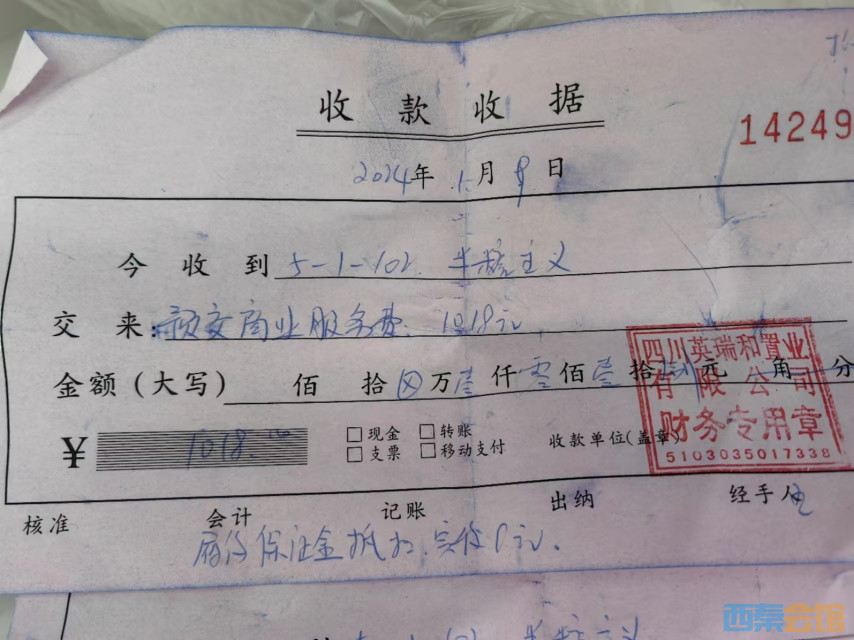 收款收据
14249
2024年1月9日
今收到5-1-102. 半糖主义
交来:预交商业服务费. 1018元
金额(大写) 佰 拾 万壹仟零佰壹拾捌元 角 分
¥ 1018.00
□现金 □转账
□支票 □移动支付
收款单位(盖章)
四川英瑞和置业
有限公司
财务专用章
5103035017338
核准 会计 记账 出纳 经手人
履约保证金抵扣.实收0元.
5-1-102 半糖主义
西秦会馆